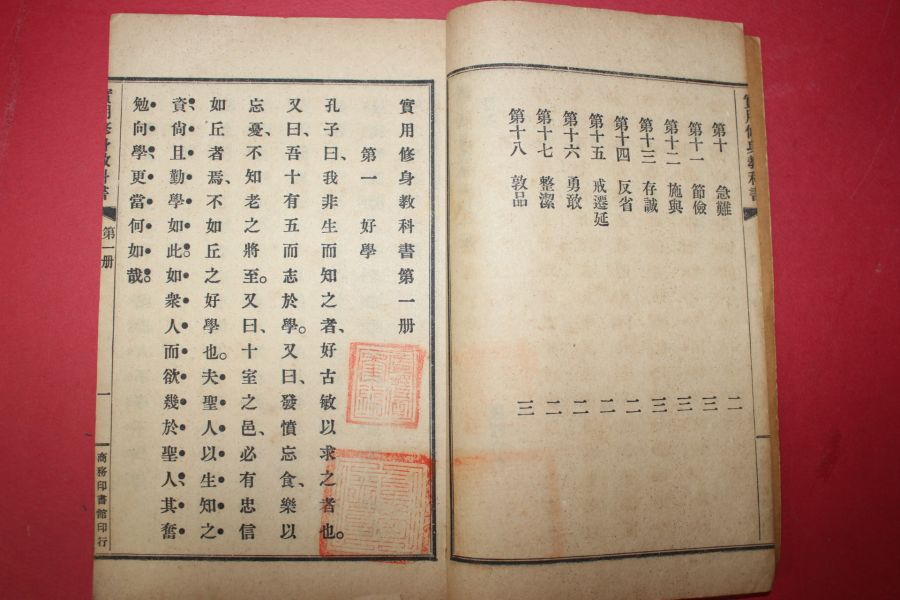 實用修身教科書
第十 急難 二
第十一 節儉 三
第十二 施與 三
第十三 存誠 三
第十四 反省 二
第十五 戒遷延 二
第十六 勇敢 二
第十七 整潔 二
第十八 敦品 三
實用修身教科書第一册
第一 好學
孔子曰、我非生而知之者、好古敏以求之者也。
又曰、吾十有五而志於學。又曰、發憤忘食、樂以
忘憂、不知老之將至。又曰、十室之邑、必有忠信
如丘者焉、不如丘之好學也。夫聖人以生知之
資、尙且勤學如此。如衆人而欲幾於聖人、其奮
勉向學、更當何如哉。
實用修身教科書 第一册 一 商務印書館印行